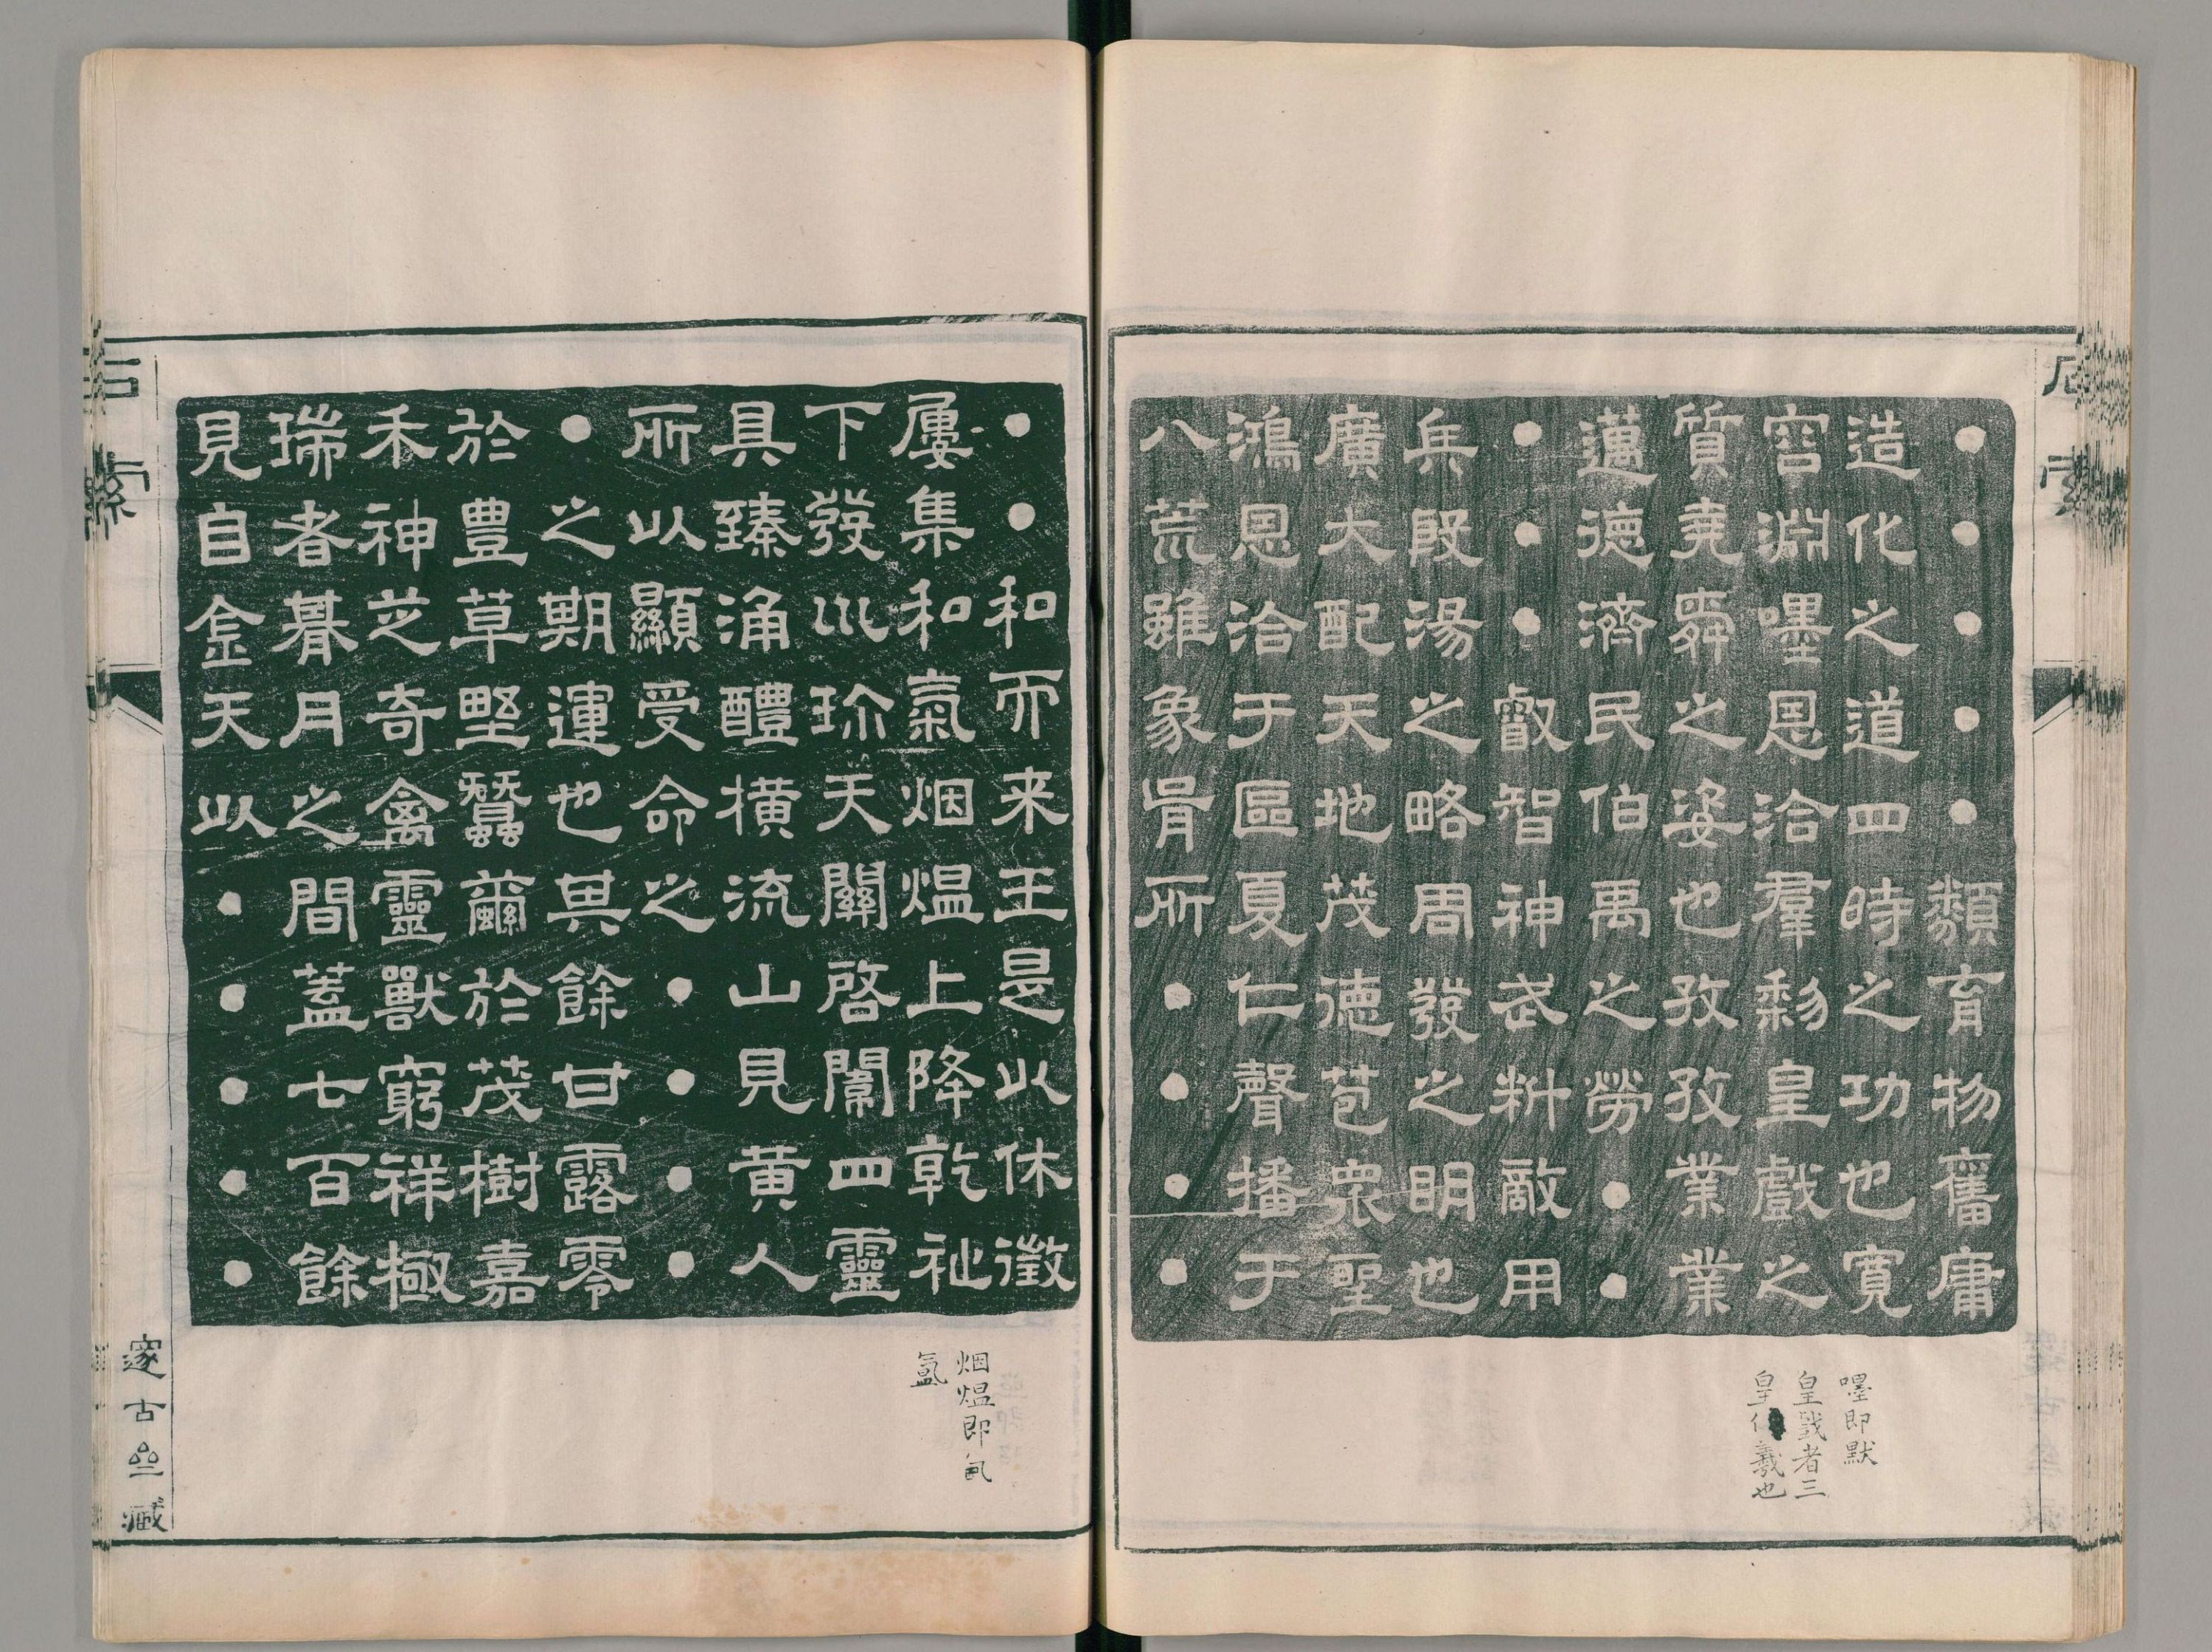 石索
●●●●●類育物奮庸
造化之道四時之功也寬
容淵嚜恩洽羣黎皇戲之
質堯舜之姿也孜孜業業
邁德濟民伯禹之勞●●
●●●叡智神武料敵用
兵殷湯之略周發之明也
廣大配天地茂德苞衆聖
鴻恩洽于區夏仁聲播于
八荒雖象胥所●●●●
嚜即默
皇戲者三
皇伏羲也
●●和而来王是以休徵
屢集和氣烟煴上降乾祉
下發以珍天關啓闈四靈
具臻涌醴橫流山見黃人
所以顯受命之●●●●
●之期運也其餘甘露零
於豊草野蠶繭於茂樹嘉
禾神芝奇禽靈獸窮祥極
瑞者朞月之間蓋七百餘
見自金天以●●●●●
烟煴即氤
氳
石索
邃古亝藏